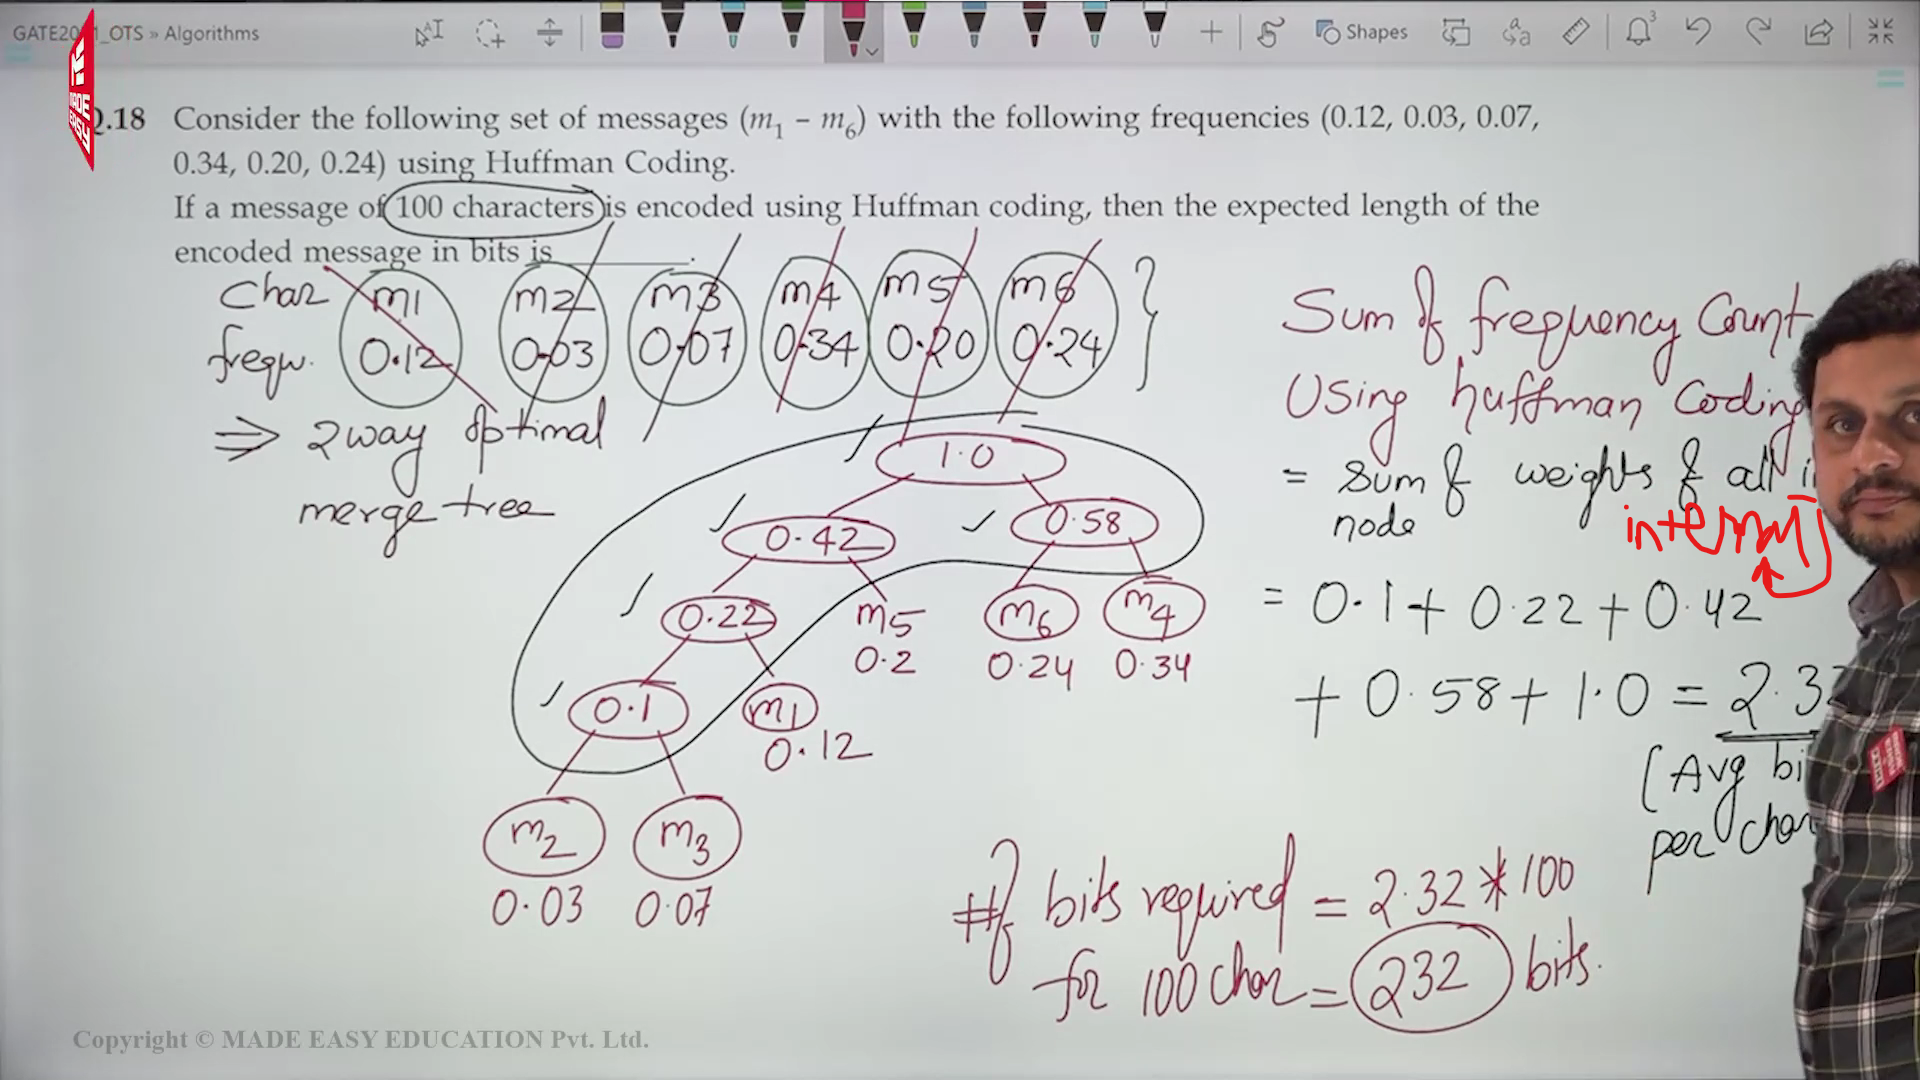 GATE20 1_OTS » Algorithms
Shapes
3
MADE EASY
Q.18 Consider the following set of messages (m1 – m6) with the following frequencies (0.12, 0.03, 0.07,
0.34, 0.20, 0.24) using Huffman Coding.
If a message of 100 characters is encoded using Huffman coding, then the expected length of the
encoded message in bits is ________.
Char m1 m2 m3 m4 m5 m6 }
frequ. 0.12 0.03 0.07 0.34 0.20 0.24
⇒ 2 way optimal
merge tree
1.0
0.42 0.58
0.22 m5 m6 m4
0.2 0.24 0.34
0.1 m1
0.12
m2 m3
0.03 0.07
Sum of frequency Count
Using huffman Coding
= sum of weights of all i
node
internal
= 0.1 + 0.22 + 0.42
+ 0.58 + 1.0 = 2.32
(Avg bi
per char
# of bits required = 2.32 * 100
for 100 char = 232 bits.
Copyright © MADE EASY EDUCATION Pvt. Ltd.